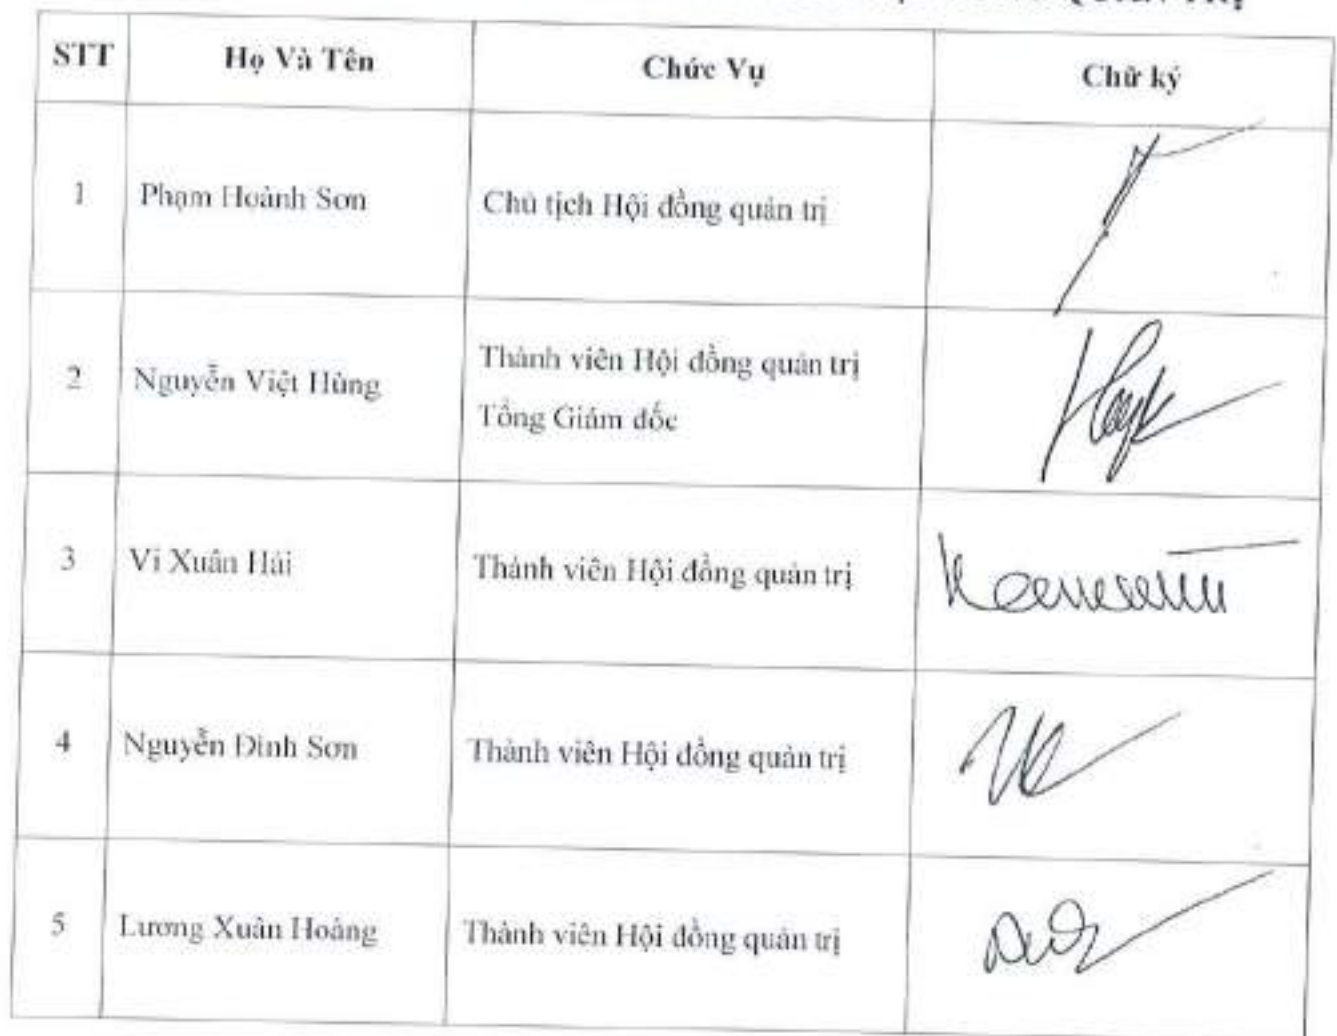 STT Họ Và Tên Chức Vụ Chữ ký
1 Phạm Hoành Sơn Chủ tịch Hội đồng quản trị
2 Nguyễn Việt Hùng Thành viên Hội đồng quản trị
Tổng Giám đốc
3 Vi Xuân Hải Thành viên Hội đồng quản trị
4 Nguyễn Đình Sơn Thành viên Hội đồng quản trị
5 Lương Xuân Hoàng Thành viên Hội đồng quản trị